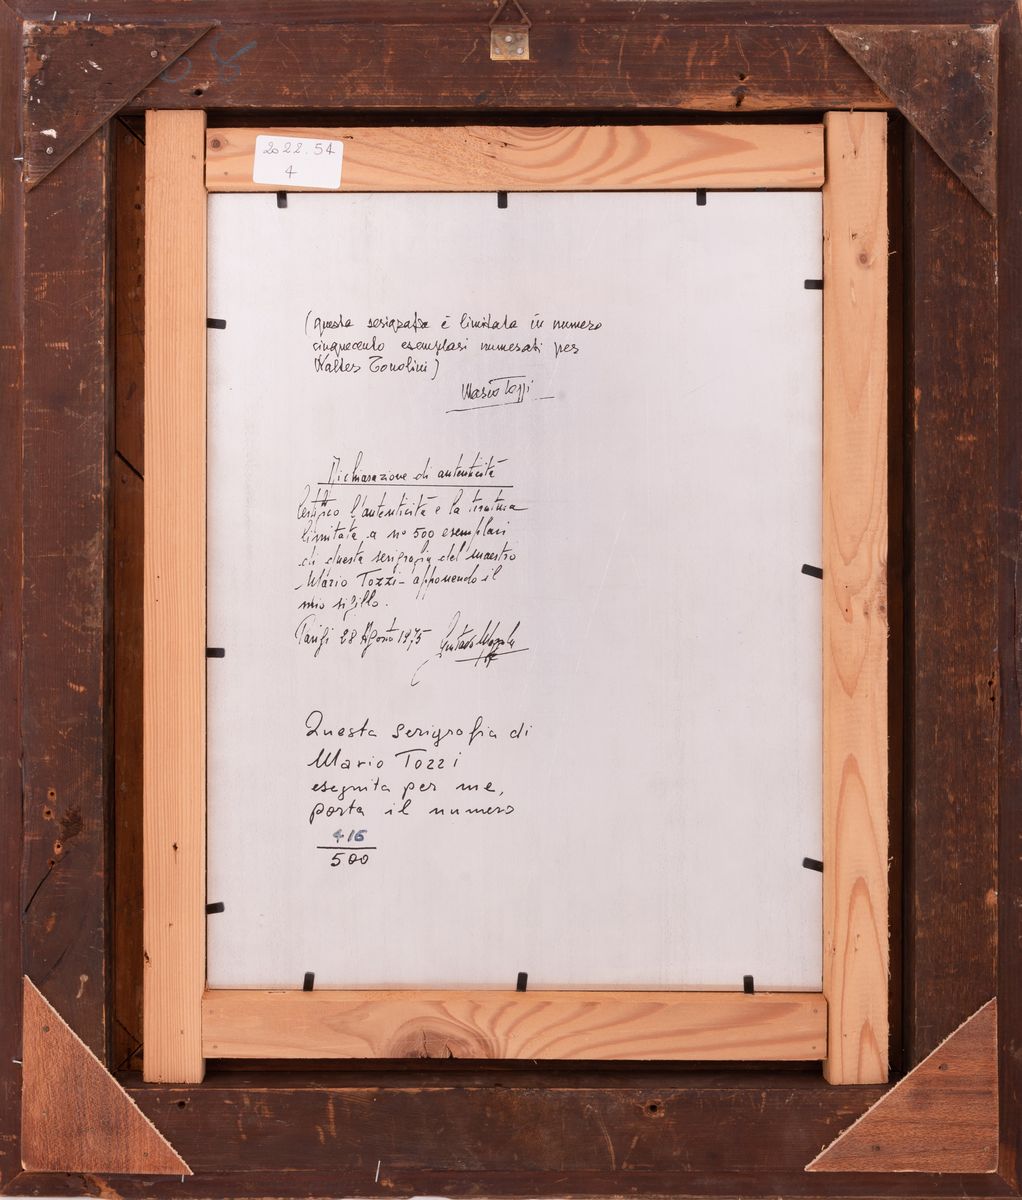 2022.54
4
(questa serigrafia è limitata in numero
cinquecento esemplari numerati per
Walter Tonolini)
Mario Tozzi
Dichiarazione di autenticità
Certifico l'autenticità e la tiratura
limitata a n° 500 esemplari
di questa serigrafia del maestro
Mario Tozzi - apponendo il
mio sigillo.
Parigi 28 Agosto 1975
Questa serigrafia di
Mario Tozzi
eseguita per me,
porta il numero
416
500